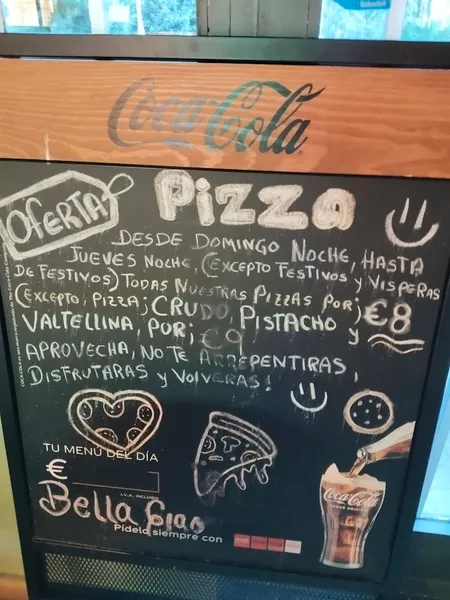 Coca-Cola
OFERTA
Pizza
DESDE DOMINGO NOCHE, HASTA
JUEVES NOCHE, (EXCEPTO FESTIVOS Y VISPERAS
DE FESTIVOS) TODAS NUESTRAS PIZZAS POR; €8
(EXCEPTO, PIZZA; CRUDO, PISTACHO Y
VALTELLINA, POR; €9
APROVECHA, NO TE ARREPENTIRAS,
DISFRUTARAS Y VOLVERAS!
TU MENÚ DEL DÍA
€
I.V.A. INCLUIDO
Bella Ciao
Pídelo siempre con
Coca-Cola